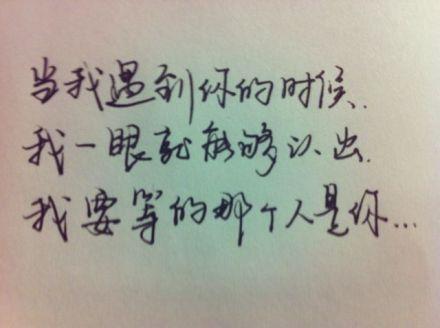 当我遇到你的时候.
我一眼就能够认出.
我要等的那个人是你...